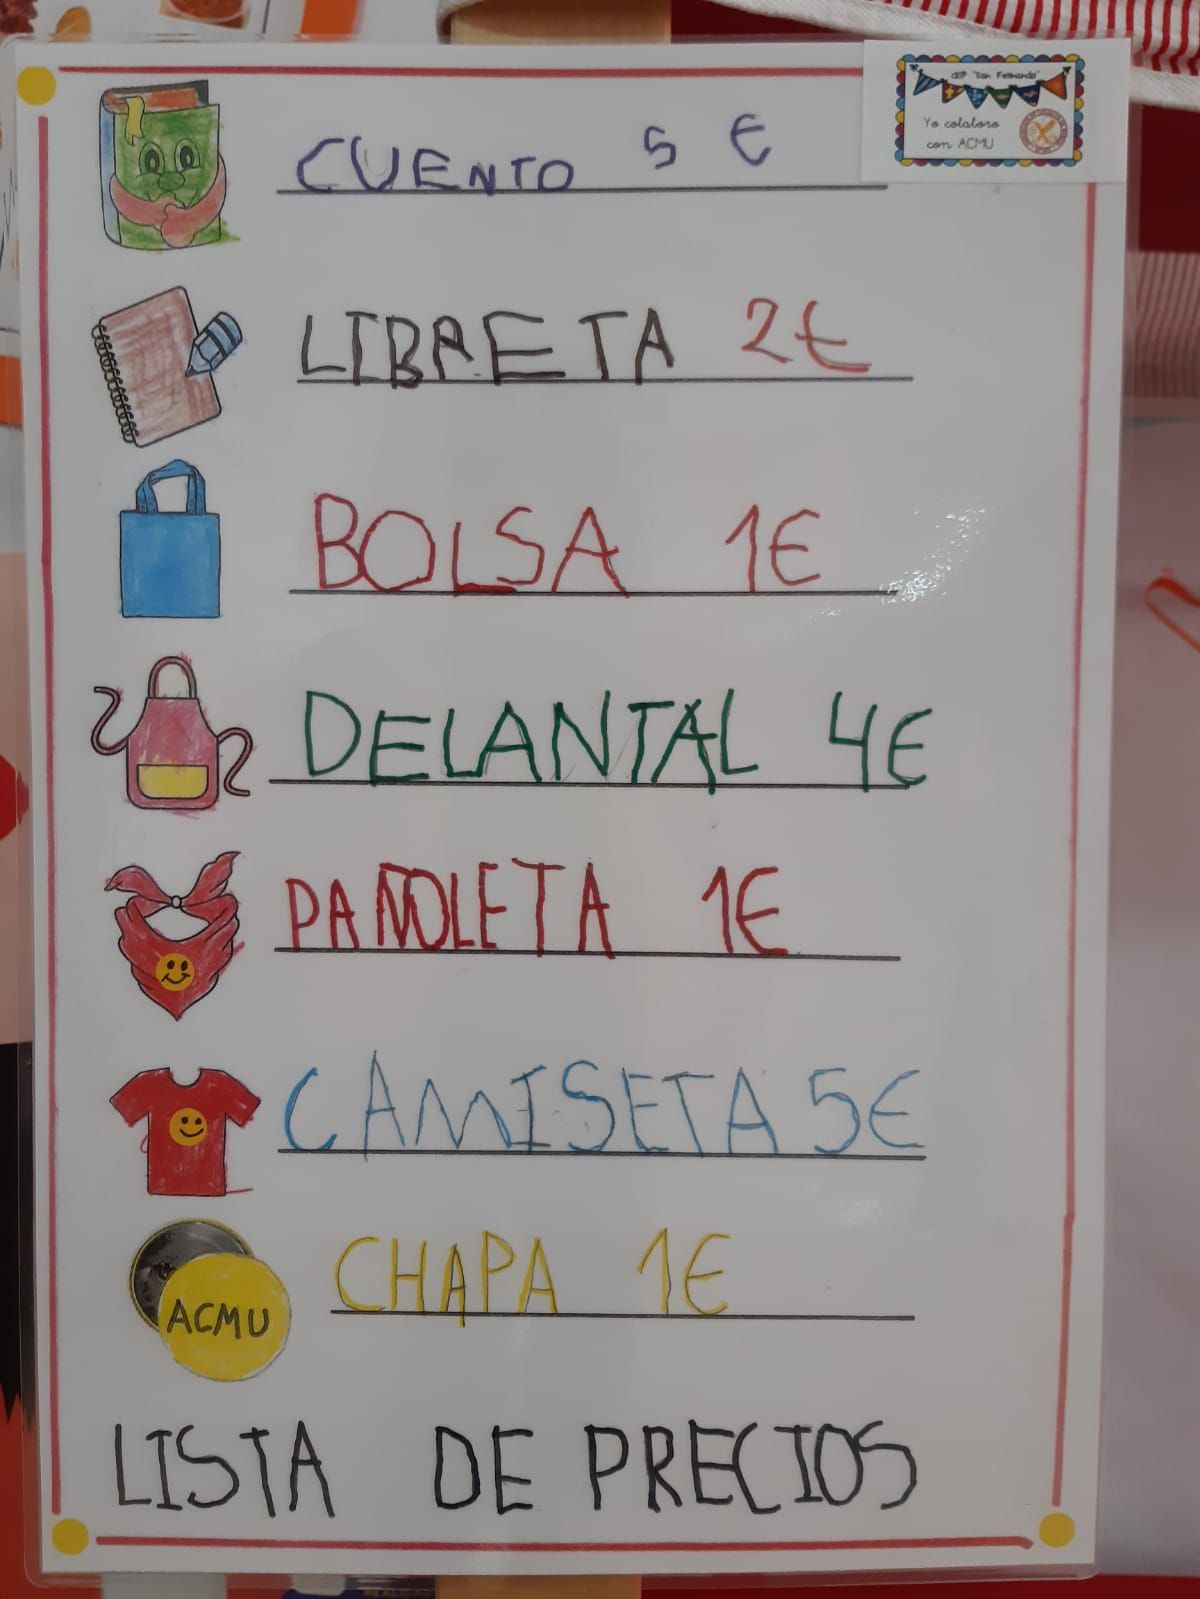 CEIP "San Fernando"
Yo colaboro
con ACMU
CUENTO 5 €
LIBRETA 2€
BOLSA 1€
DELANTAL 4€
PAÑOLETA 1€
CAMISETA 5€
CHAPA 1€
ACMU
LISTA DE PRECIOS